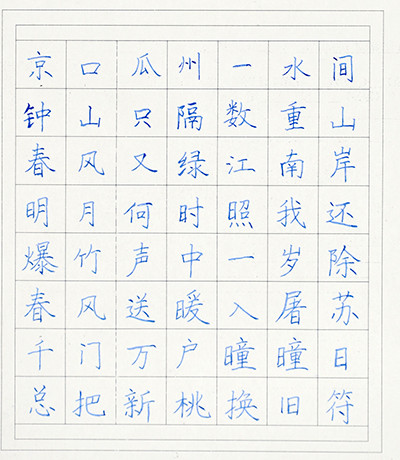 京口瓜州一水间
钟山只隔数重山
春风又绿江南岸
明月何时照我还
爆竹声中一岁除
春风送暖入屠苏
千门万户曈曈日
总把新桃换旧符